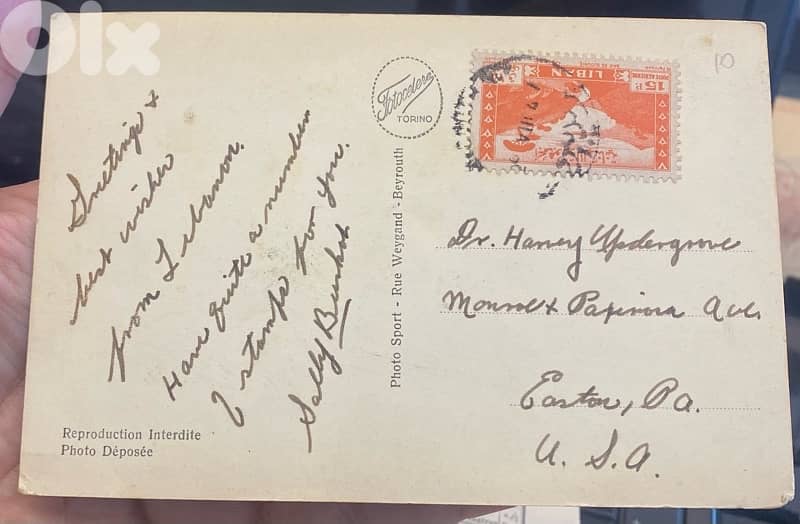 olx
Greetings &
best wishes
from Lebanon.
Have quite a number
of stamps for you.
Sally
Fotocelere
TORINO
Photo Sport - Rue Weygand - Beyrouth
Reproduction Interdite
Photo Déposée
LIBAN
POSTE AERIENNE
15 P.
10
Dr. Harvey Updegrove
Monroe & Aves
Easton, Pa.
U. S. A.